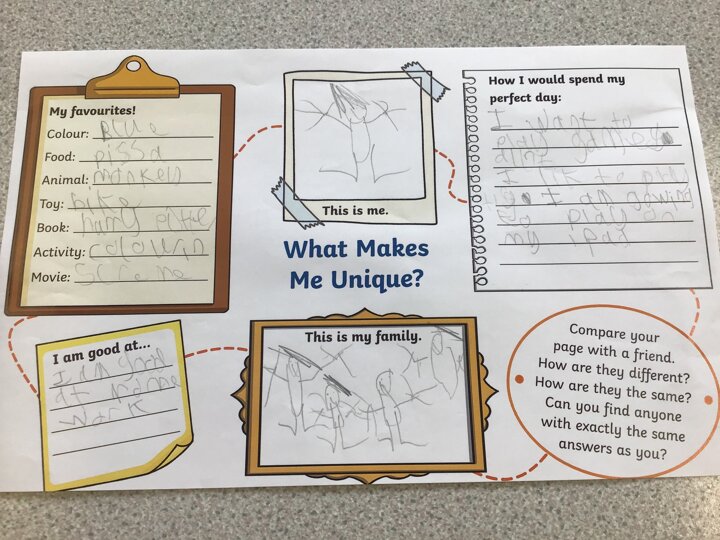 My favourites!
Colour: Blue
Food: pissa
Animal: mankeh
Toy: bike
Book:
Activity: colouin
Movie:
This is me.
How I would spend my
perfect day:
I want to
play games
I to play
I am going
to play on
my ipad
What Makes
Me Unique?
I am good at...
I am good
at
work
This is my family.
Compare your
page with a friend.
How are they different?
How are they the same?
Can you find anyone
with exactly the same
answers as you?